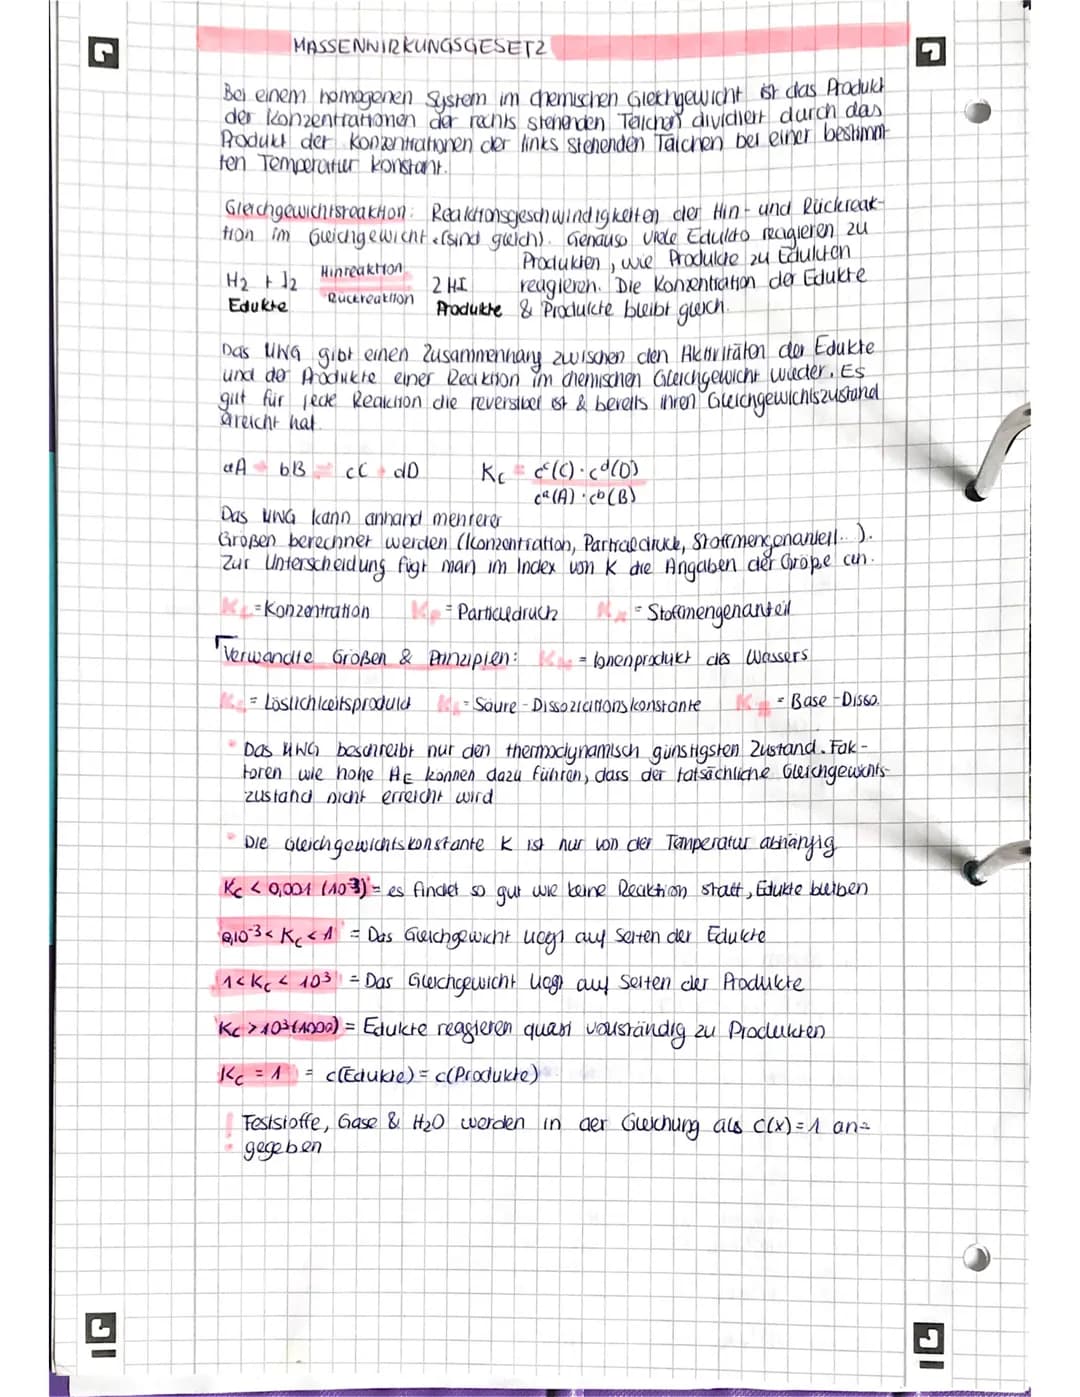 MASSENWIRKUNGSGESETZ
Bei einem homogenen System im chemischen Gleichgewicht ist das Produkt
der Konzentrationen der rechts stehenden Teilchen dividiert durch das
Produkt der Konzentrationen der links stehenden Teilchen bei einer bestimm-
ten Temperatur konstant.
Gleichgewichtsreaktion: Reaktionsgeschwindigkeiten der Hin- und Rückreak-
tion im Gleichgewicht (sind gleich). Genauso viele Edukte reagieren zu
Produkten, wie Produkte zu Edukten
H2 + I2 Hinreaktion 2 HI reagieren. Die Konzentration der Edukte
Rückreaktion
Edukte Produkte & Produkte bleibt gleich.
Das MWG gibt einen Zusammenhang zwischen den Aktivitäten der Edukte
und der Produkte einer Reaktion im chemischen Gleichgewicht wieder. Es
gilt für jede Reaktion die reversibel ist & bereits ihren Gleichgewichtszustand
erreicht hat
aA + bB ⇌ cC + dD Kc = c^c(C) · c^d(D)
c^a(A) · c^b(B)
Das MWG kann anhand mehrerer
Größen berechnet werden (Konzentration, Partialdruck, Stoffmengenanteil...).
Zur Unterscheidung fügt man im Index von K die Angaben der Größe an.
Kc = Konzentration Kp = Partialdruck Kx = Stoffmengenanteil
Verwandte Größen & Prinzipien: Kw = Ionenprodukt des Wassers
= Löslichkeitsprodukt = Säure-Dissoziationskonstante KB = Base-Disso.
• Das MWG beschreibt nur den thermodynamisch günstigsten Zustand. Fak-
toren wie hohe AE können dazu führen, dass der tatsächliche Gleichgewichts-
zustand nicht erreicht wird
• Die Gleichgewichtskonstante K ist nur von der Temperatur abhängig
Kc < 0,001 (10^-3) = es findet so gut wie keine Reaktion statt, Edukte bleiben
10^-3 < Kc < 1 = Das Gleichgewicht liegt auf Seiten der Edukte
1 < Kc < 10^3 = Das Gleichgewicht liegt auf Seiten der Produkte
Kc > 10^3 (1000) = Edukte reagieren quasi vollständig zu Produkten
Kc = 1 = c(Edukte) = c(Produkte)
! Feststoffe, Gase & H2O werden in der Gleichung als c(x) = 1 an-
gegeben